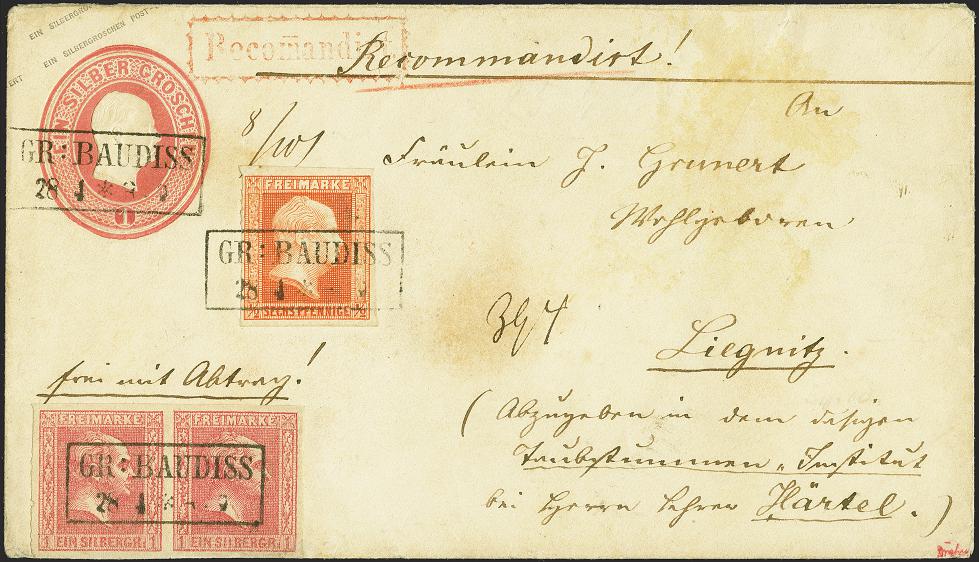 EIN SILBERGROSCHEN POST-
EIN SILBERGRO
ERT
EIN SILBER GROSCHEN
1
Recomandirt
Recommandirt!
GR: BAUDISS
28 1 * 2
8/101
An
Fräulein J. Grunert
Wohlgeboren
FREIMARKE
GR: BAUDISS
28 1
½ SECHS PFENNIGE ½
Liegnitz.
frei mit Abtrag!
(Abzugeben in dem dasigen
Taubstummen-Institut
bei Herrn Lehrer Härtel.)
FREIMARKE FREIMARKE
GR: BAUDISS
28 1
1 EIN SILBERGR. 1 1 EIN SILBERGR. 1